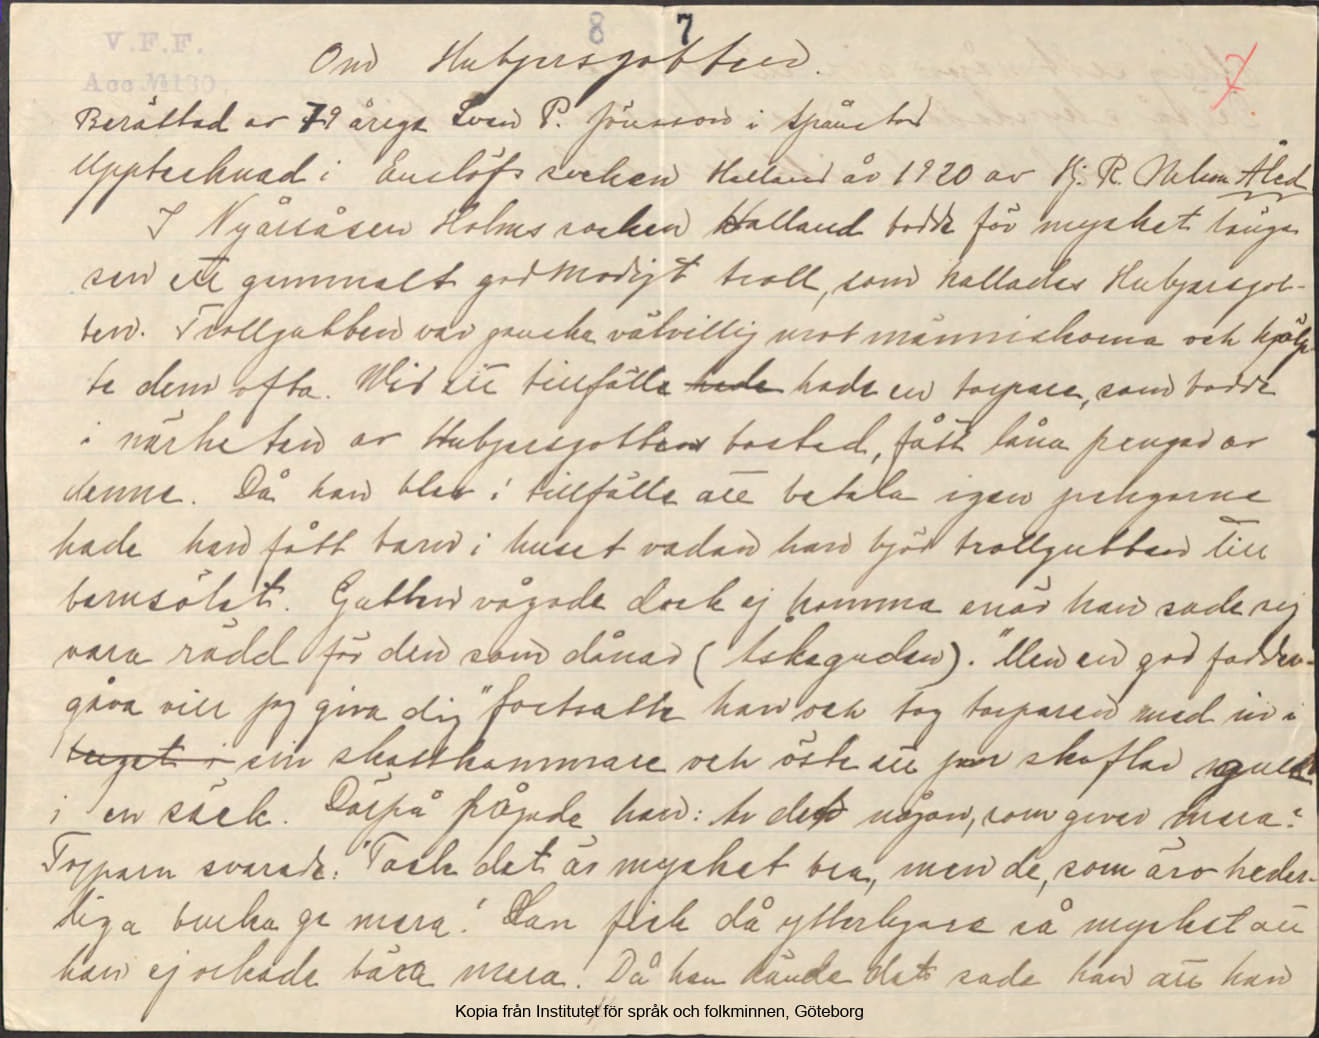 8 7
V.F.F.
Acc. № 130.
7
Om Hubjersgobben.
Berättad av 79 åriga Sven P. Jönsson i Spånstad
Upptecknad i Enslöfs socken Halland år 1920 av Hj. R. Nelson Åled
I Nyårsåsen Holms socken Halland bodde för mycket länge
sen ett gammalt godmodigt troll, som kallades Hubjersgob-
ben. Trollgubben var ganska välvillig mot människorna och hjälp-
te dem ofta. Wid ett tillfälle hade hade en torpare, som bodde
i närheten av Hubjersgobbens bostad, fått låna pengar av
denne. Då han blev i tillfälle att betala igen pengarne
hade han fått barn i huset vadan han bjöd trollgubben till
barnsölet. Gubben vågade dock ej komma enär han sade sig
vara rädd för den som dånar (åskguden). "Men en god fadder-
gåva vill jag giva dig" fortsatte han och tog torparen med in i
berget i sin skattkammare och öste ett par skoflar guld
i en säck. Därpå frågade han: Är det någon, som giver mera?
Torparn svarade: "Tack det är mycket bra, men de, som äro heder-
liga bruka ge mera! Han fick då ytterligare så mycket att
han ej orkade bära mera. Då han kände det sade han att han
Kopia från Institutet för språk och folkminnen, Göteborg